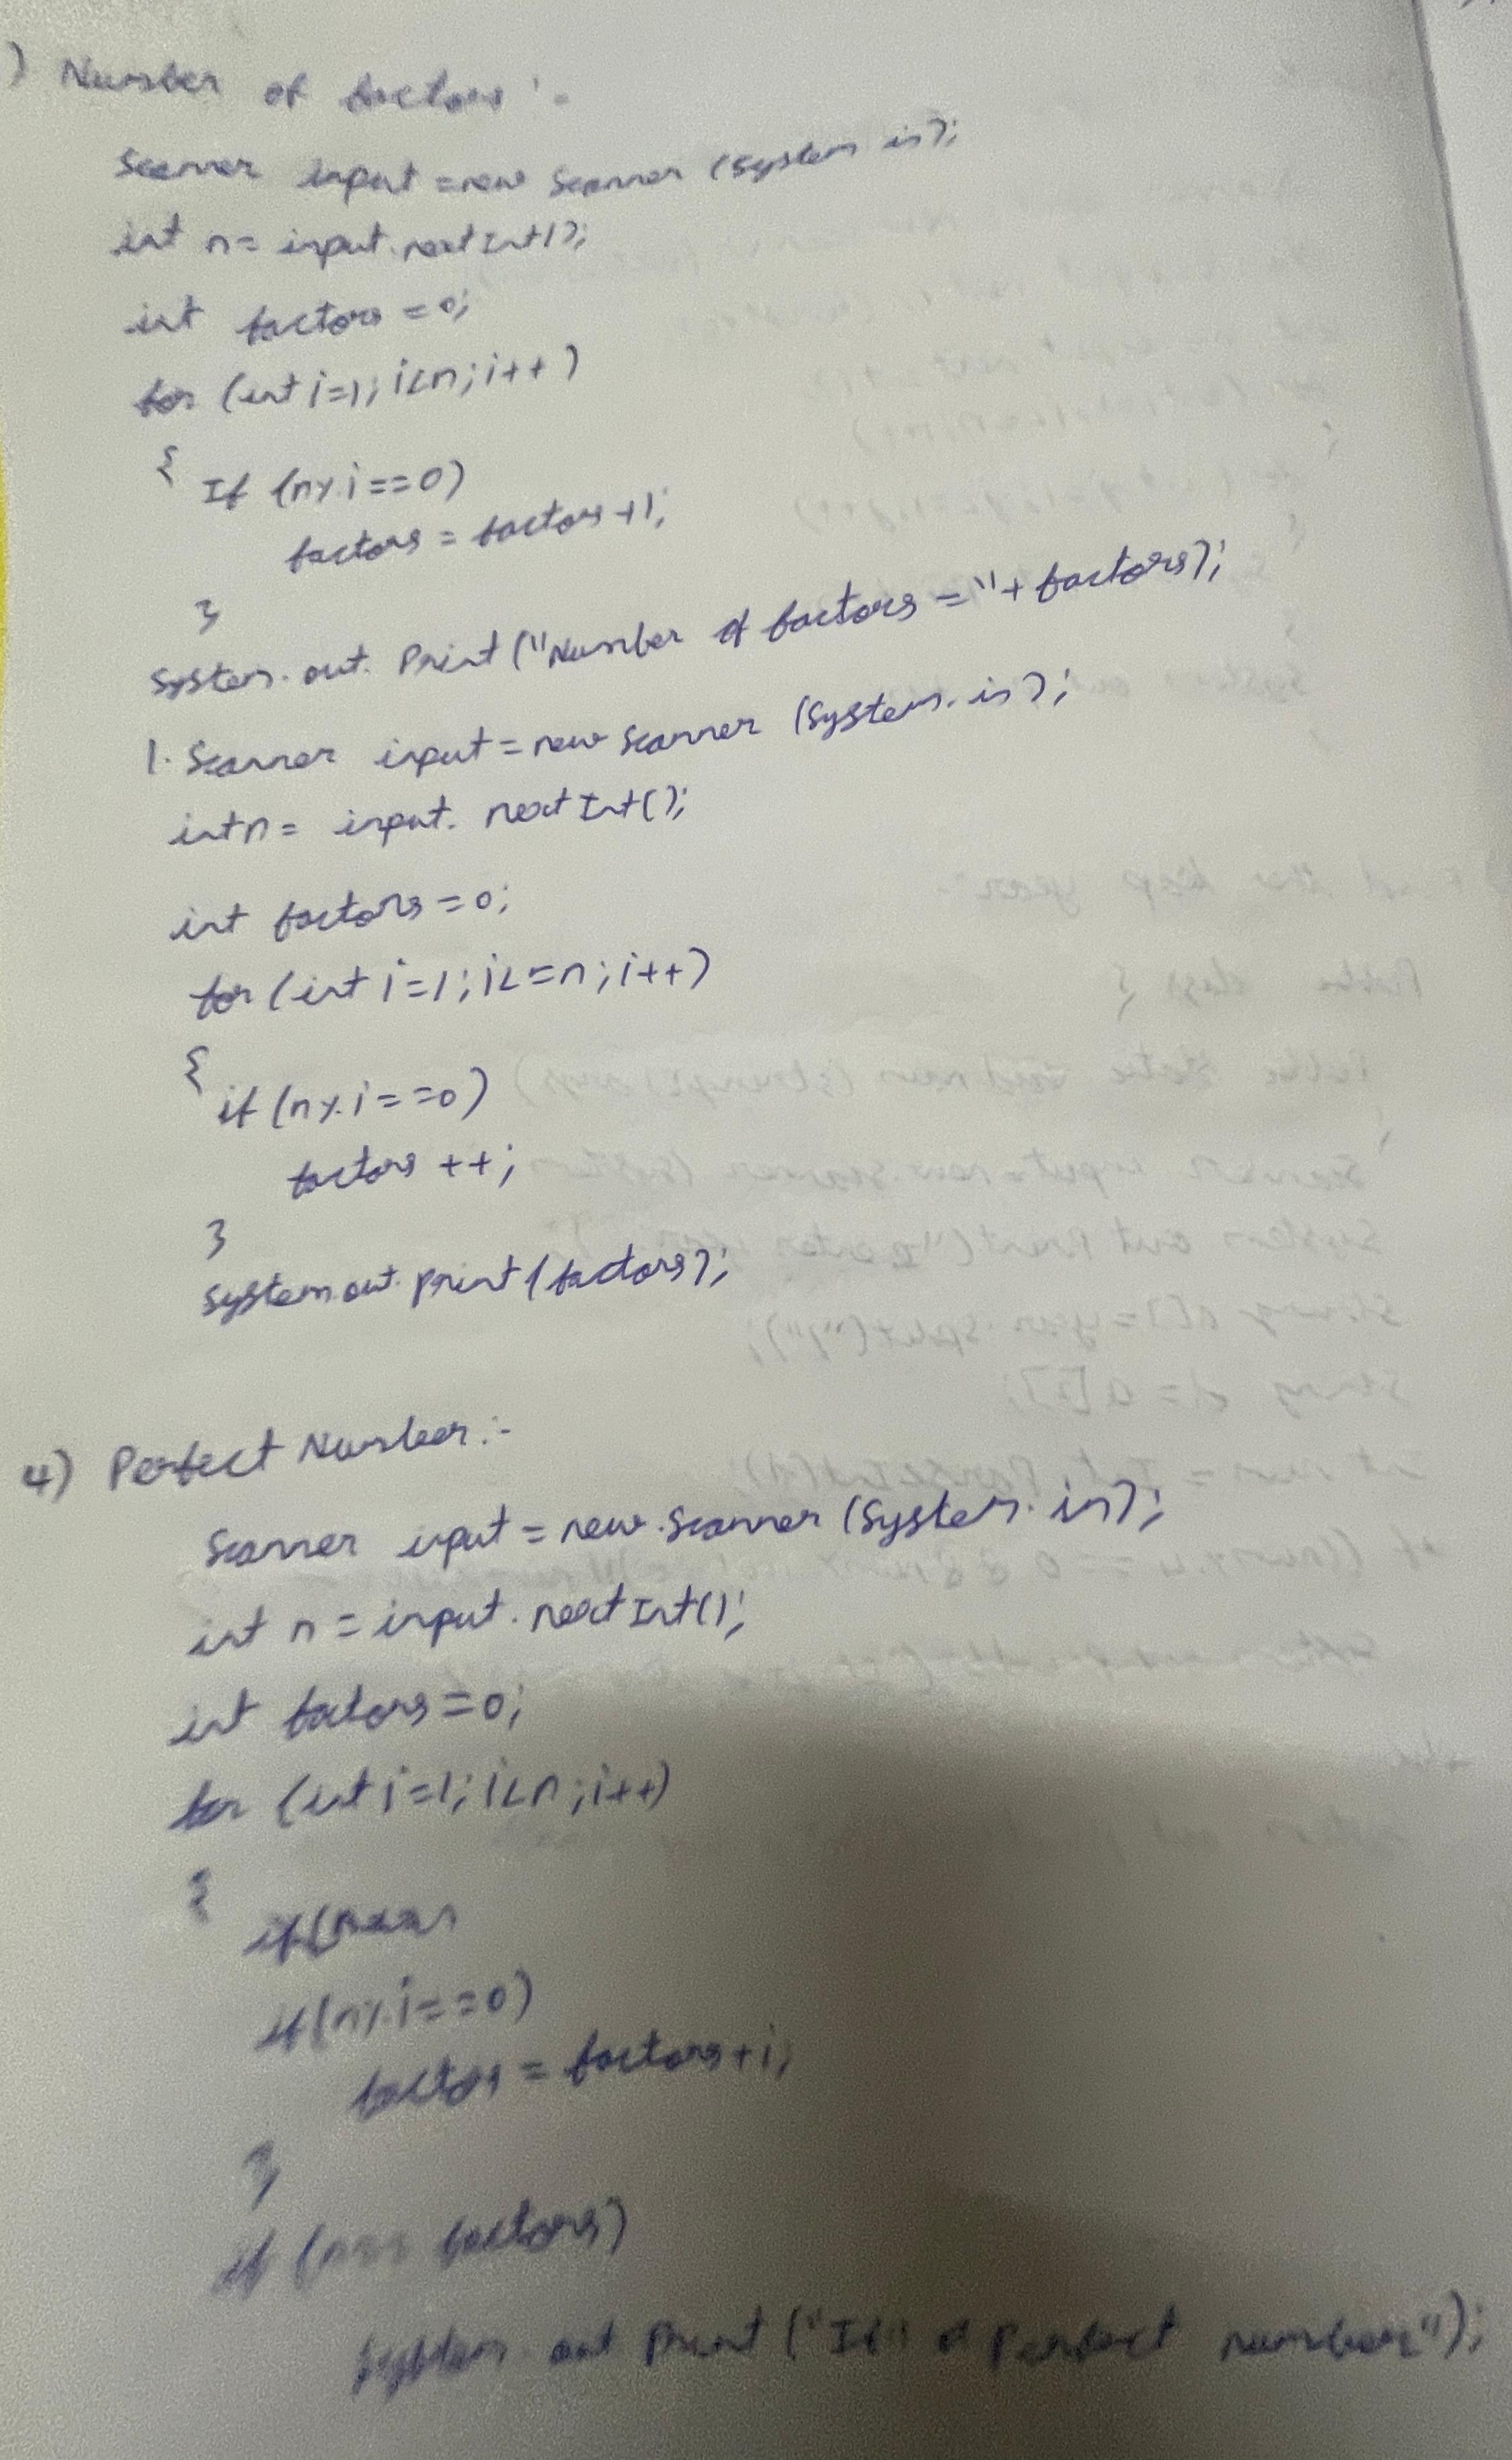 ) Number of factors :-
Scanner input = new Scanner (System in);
int n = input.nextInt();
int factors = 0;
for (int i=1; i<n; i++)
{
If (n%i==0)
factors = factors+1;
}
System.out.Print("Number of factors ="+factors);
1. Scanner input = new Scanner (System.in);
int n = input.nextInt();
int factors = 0;
for (int i=1; i<=n; i++)
{
if (n%i==0)
factors ++;
}
System.out.print(factors);
4) Perfect Number :-
Scanner input = new Scanner (System.in);
int n = input.nextInt();
int fators = 0;
for (int i=1; i<n; i++)
{
if(
if(n%i==0)
factors = factors+i;
}
if (n== factors)
System.out Print ("It" a Perfect number");